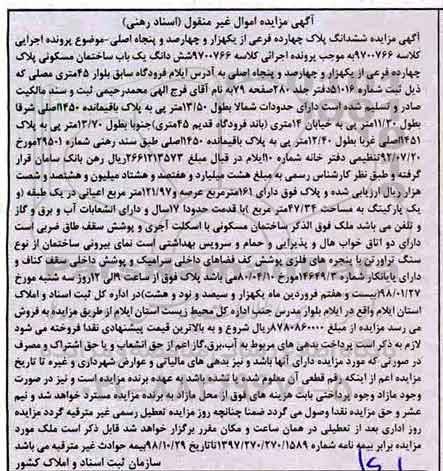 آگهی مزایده اموال غیر منقول (اسناد رهنی)
آگهی مزایده ششدانگ پلاک چهارده فرعی از یکهزار و چهارصد و پنجاه اصلی-موضوع پرونده اجرایی
کلاسه ۹۷۰۰۷۶۶به موجب پرونده اجرائی کلاسه ۹۷۰۰۷۶۶شش دانگ یک باب ساختمان مسکونی پلاک
چهارده فرعی از یکهزار و چهارصد و پنجاه اصلی به آدرس ایلام فرودگاه سابق بلوار ۴۵متری مصلی که
ذیل ثبت شماره ۵۱۰۱۶دفتر جلد ۲۸۰صفحه ۷۹به نام آقای فرج الهی محمدرحیمی ثبت و سند مالکیت
صادر و تسلیم شده است دارای حدودات شمالا بطول ۱۳/۵۰متر پی به پلاک باقیمانده ۱۴۵۰اصلی شرقا
بطول ۱۱/۲۰متر پی به خیابان ۱۴متری (باند فرودگاه قدیم ۴۵متری)جنوبا بطول ۱۳/۷۰متر پی به پلاک
۱۴۵۱اصلی غربا بطول ۱۲/۴۰متر پی به پلاک باقیمانده ۱۴۵۰اصلی طبق سند رهنی شماره ۲۹۵۰۱مورخ
۹۲/۰۷/۲۰تنظیمی دفتر خانه شماره ۱۰ایلام در قبال مبلغ ۲۶۶۱۲۱۳۵۷۳ریال رهن بانک سامان قرار
گرفته و طبق نظر کارشناس رسمی به مبلغ هشت میلیارد و هفتصد و هشتاد میلیون و هشتصد و شصت
هزار ریال ارزیابی شده و پلاک فوق دارای ۱۶۱مترمربع عرصه و۱۲۱/۹۷متر مربع اعیانی در یک طبقه (و
یک پارکینگ به مساحت ۴۷/۳۴متر مربع )با قدمت حدودا ۱۷سال و دارای انشعابات آب و برق و گاز
و تلفن می باشد ملک فوق الذکر ساختمان مسکونی با اسکلت آجری و پوشش سقف طاق ضربی است
دارای دو اتاق خواب هال و پذیرایی و حمام و سرویس بهداشتی است نمای بیرونی ساختمان از نوع
سنگ تراورتن با پنجره های فلزی پوشش کف فضاهای داخلی سرامیک و پوشش داخلی سقف کناف و
دارای پایانکار شماره ۱۴۶۴۹/۳مورخ ۸۰/۰۴/۱۰می باشد پلاک فوق از ساعت ۹الی ۱۲روز سه شنبه مورخ
۹۸/۰۱/۲۷(بیست و هفتم فروردین ماه یکهزار و سیصد و نود و هشت)در اداره کل ثبت اسناد و املاک
استان ایلام واقع در ایلام بلوار مدرس جنب اداره کل محیط زیست استان ایلام از طریق مزایده به فروش
می رسد مزایده از مبلغ ۸۷۸۰۸۶۰۰۰۰ریال شروع و به بالاترین قیمت پیشنهادی نقدا فروخته می شود
لازم به ذکر است پرداخت بدهی های مربوط به آب،برق،گاز اعم از حق انشعاب و یا حق اشتراک و مصرف
در صورتی که مورد مزایده دارای آنها باشد و نیز بدهی های مالیاتی و عوارض شهرداری و غیره تا تاریخ
مزایده اعم از اینکه رقم قطعی آن معلوم شده یا نشده باشد به عهده برنده مزایده است و نیز در صورت
وجود مازاد وجوه پرداختی بابت هزینه های فوق از محل مازاد به برنده مزایده مسترد خواهد شد و نیم
عشر و حق مزایده نقدا وصول می گردد ضمنا چنانچه روز مزایده تعطیل رسمی غیر مترقبه گردد مزایده
روز اداری بعد از تعطیلی در همان ساعت و مکان مقرر برگزار خواهد شد قابل ذکر است ملک مورد
مزایده برابر بیمه نامه شماره ۱۳۹۷/۲۷۰/۲۷۰/۱۵۸۹تاتاریخ ۹۸/۱۰/۲۹بیمه حوادث غیر مترقبه می باشد
سازمان ثبت اسناد و املاک کشور